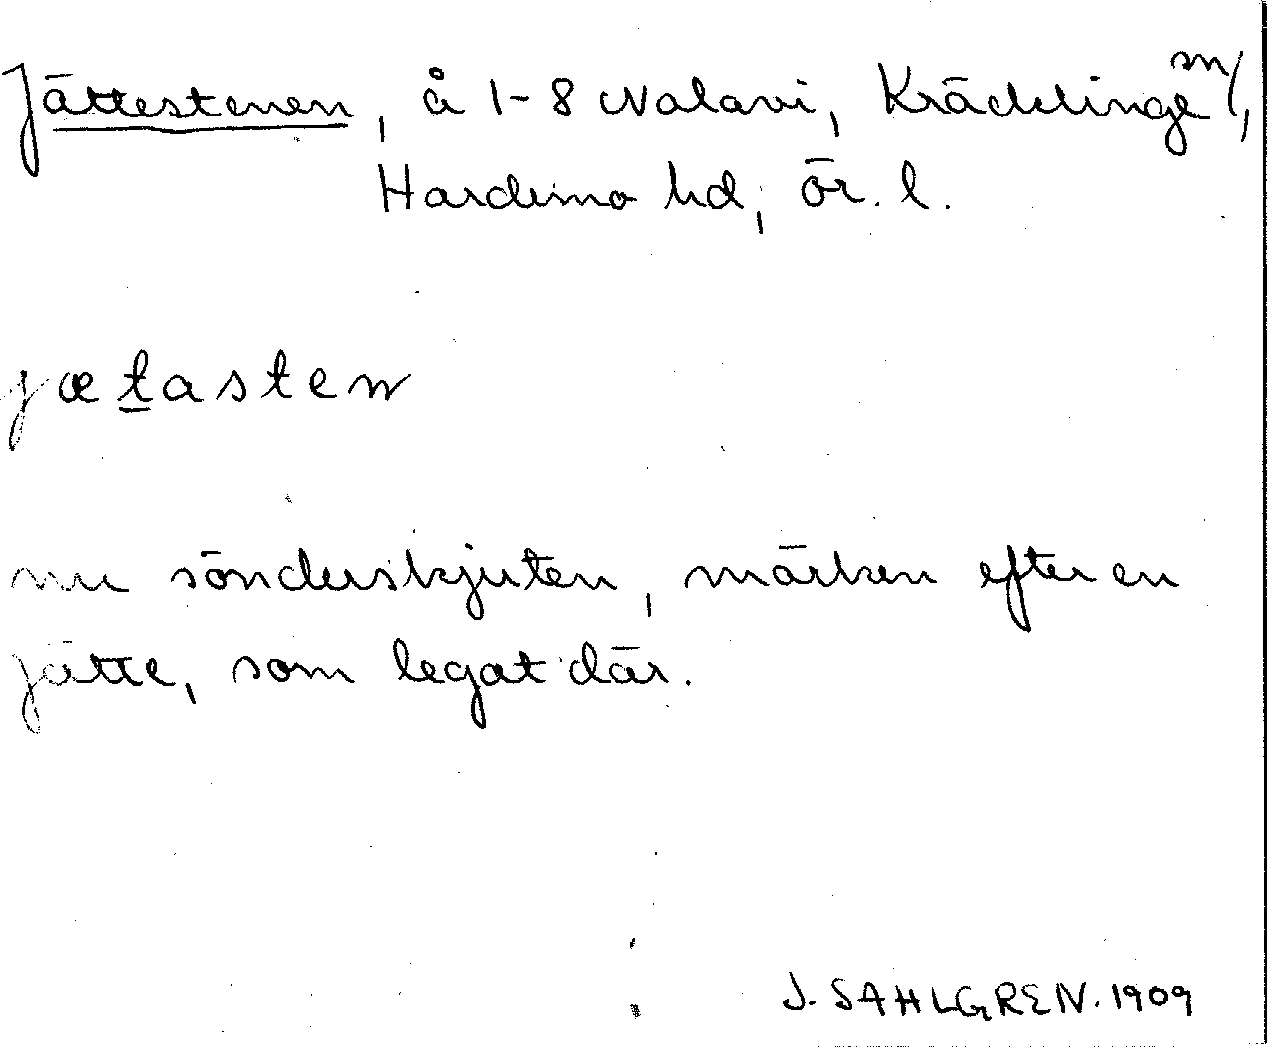 Jättestenen, å 1-8 Nalavi, Kräcklinge sn/,
Hardemo hd, ör. l.
jætasten
nu sönderskjuten, märken efter en
jätte, som legat där.
J. SAHLGREN. 1909